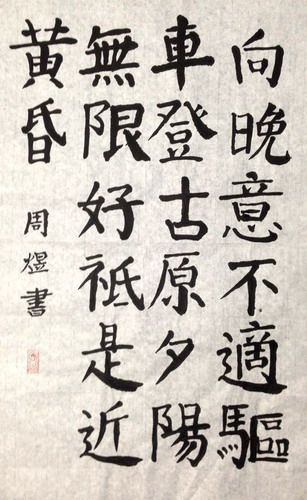 向晚意不適驅
車登古原夕陽
無限好祗是近
黄昏
周煜書